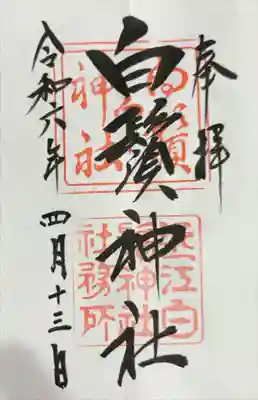 奉拝
白鬚神社
令和六年
四月十三日
白鬚神社
近江白鬚神社社務所